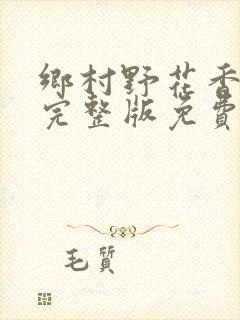 鄉村野花香
完整版免費
毛質